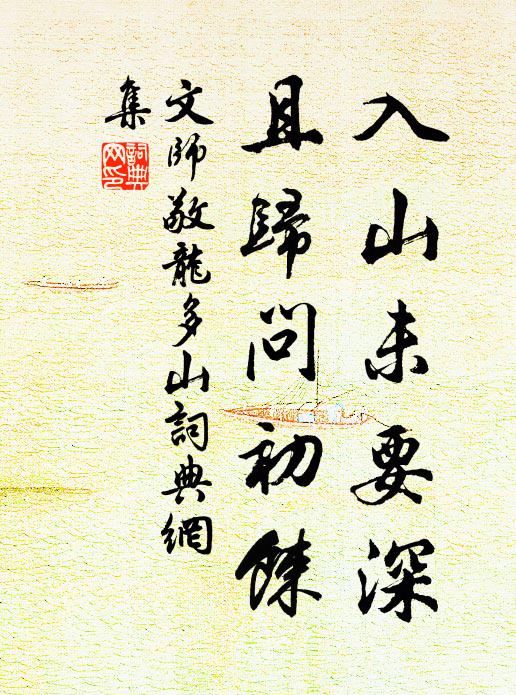 入山未要深
且歸問初餗
文師敬龍多山詞典網
集
詞典
网印